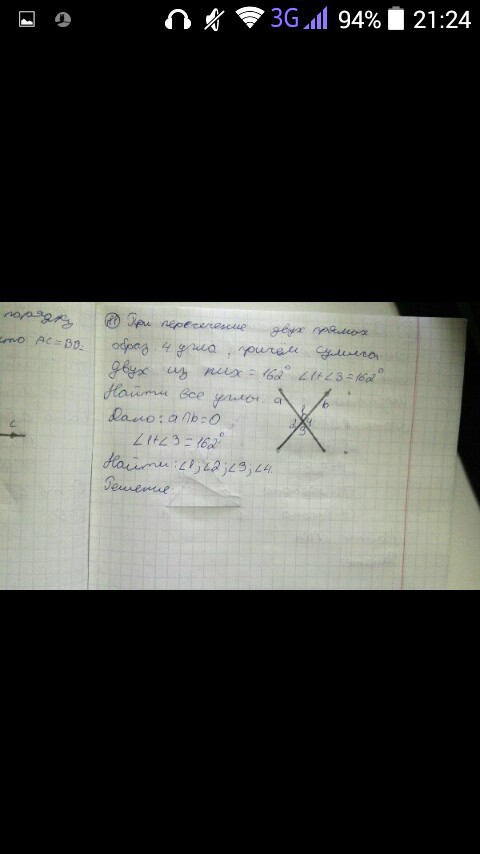 3G 94% 21:24
порядку
что AC=BD=
c
11 При пересечение двух прямых
образ. 4 угла, причём сумма
двух из них = 162° ∠1+∠3=162°
Найти все углы.
a b
1
2 4
3
Дано: a∩b=O
∠1+∠3=162°
Найти: ∠1; ∠2; ∠3; ∠4.
Решение